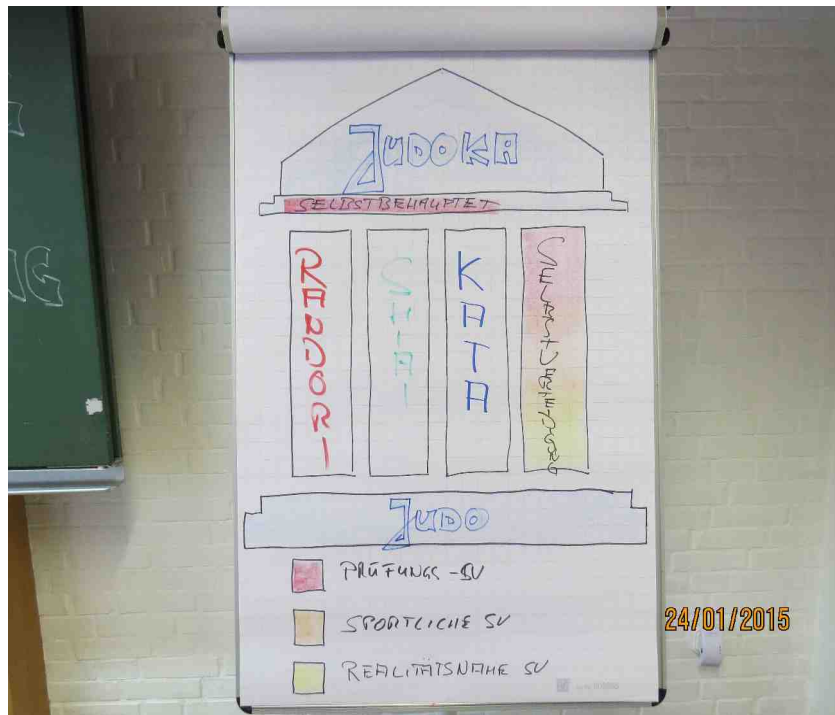 JUDOKA
SELBSTBEHAUPTET
RANDORI
SHIAI
KATA
SELBSTVERTEIDIGUNG
JUDO
PRÜFUNGS-SV
SPORTLICHE SV
REALITÄTSNAHE SV
24/01/2015